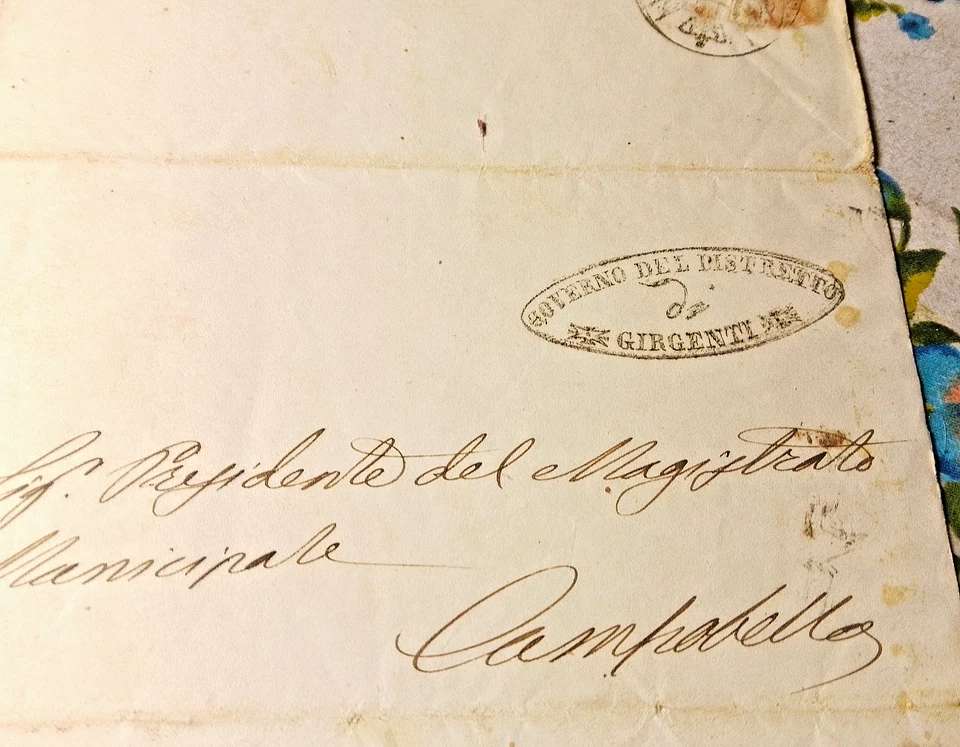 GOVERNO DEL DISTRETTO
di
GIRGENTI
Sig.r Presidente del Magistrato
Municipale
Campobello